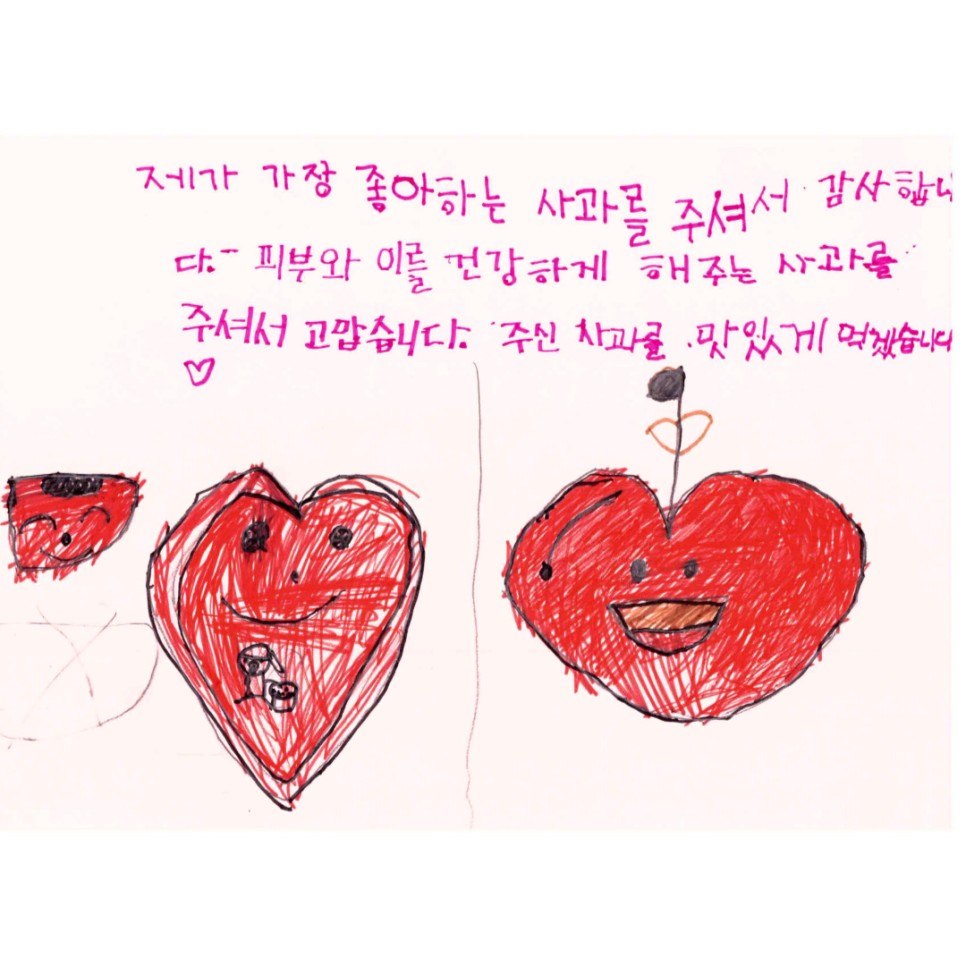 제가 가장 좋아하는 사과를 주셔서 감사합니
다. 피부와 이를 건강하게 해주는 사과를
주셔서 고맙습니다. 주신 사과를 맛있게 먹겠습니다
♡